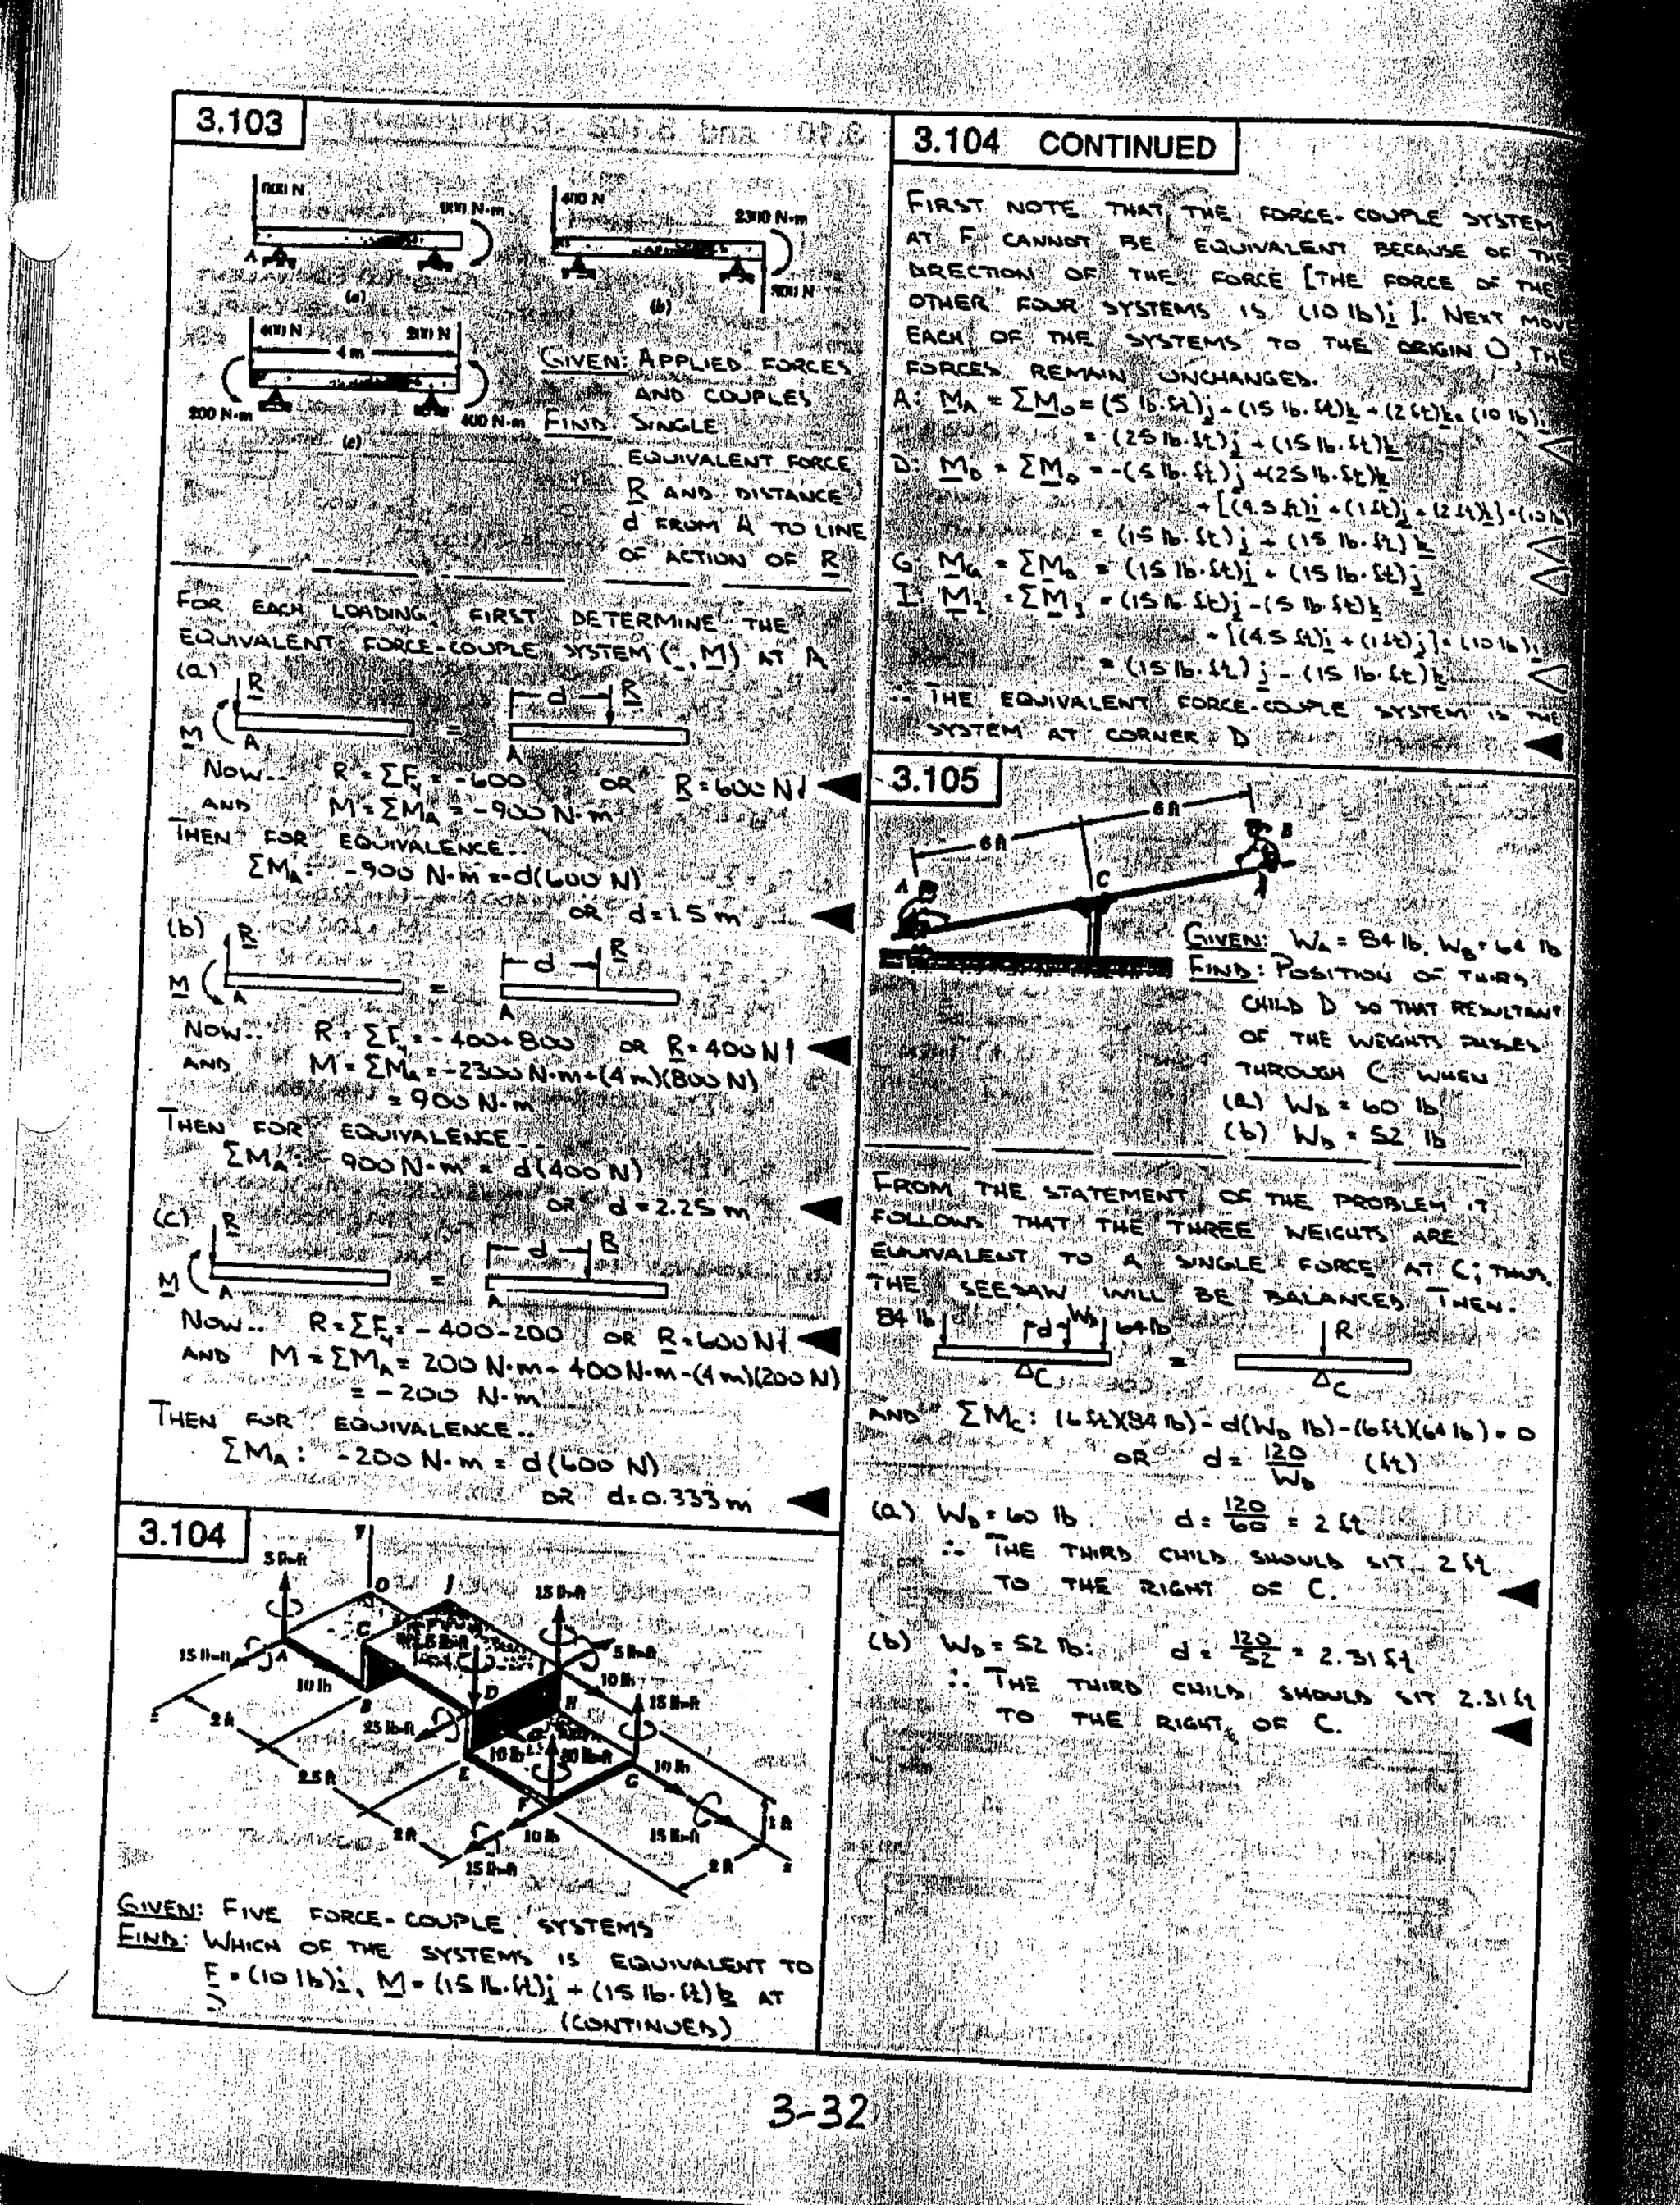 3.103
400 N
2300 N·m
(a)
(b)
400 N
200 N
4 m
200 N·m
400 N·m
(c)
GIVEN: APPLIED FORCES
AND COUPLES
FIND: SINGLE
EQUIVALENT FORCE
R AND DISTANCE
d FROM A TO LINE
OF ACTION OF R
FOR EACH LOADING, FIRST DETERMINE THE
EQUIVALENT FORCE-COUPLE SYSTEM ( , M) AT A
(a)
R
M
A
=
d
R
A
NOW.. R = ΣFy = -600 OR R = 600 N↓
AND M = ΣMA = -900 N·m
THEN FOR EQUIVALENCE..
ΣMA: -900 N·m = -d(600 N)
OR d = 1.5 m
(b)
R
M
A
=
d
R
A
NOW.. R = ΣFy = -400+800 OR R = 400 N↑
AND M = ΣMA = -2300 N·m+(4 m)(800 N)
= 900 N·m
THEN FOR EQUIVALENCE..
ΣMA: 900 N·m = d(400 N)
OR d = 2.25 m
(c)
R
M
A
=
d
R
A
NOW.. R = ΣFy = -400-200 OR R = 600 N↓
AND M = ΣMA = 200 N·m + 400 N·m - (4 m)(200 N)
= -200 N·m
THEN FOR EQUIVALENCE..
ΣMA: -200 N·m = d(600 N)
OR d = 0.333 m
3.104
y
5 lb·ft
O
J
15 lb·ft
15 lb·ft
A
C
5 lb·ft
10 lb
B
D
10 lb
H
15 lb·ft
z
2 ft
25 lb·ft
10 lb
E
G
10 lb
2.5 ft
F
10 lb
15 lb·ft
1 ft
2 ft
15 lb·ft
2 ft
GIVEN: FIVE FORCE-COUPLE SYSTEMS
FIND: WHICH OF THE SYSTEMS IS EQUIVALENT TO
F = (10 lb)i, M = (15 lb·ft)j + (15 lb·ft)k AT
(CONTINUED)
3.104 CONTINUED
FIRST NOTE THAT THE FORCE-COUPLE SYSTEM
AT F CANNOT BE EQUIVALENT BECAUSE OF THE
DIRECTION OF THE FORCE [THE FORCE OF THE
OTHER FOUR SYSTEMS IS (10 lb)i]. NEXT MOVE
EACH OF THE SYSTEMS TO THE ORIGIN O, THE
FORCES REMAIN UNCHANGED.
A: MA = ΣMO = (5 lb·ft)j + (15 lb·ft)k + (2 ft)k × (10 lb)i
= (25 lb·ft)j + (15 lb·ft)k
D: MD = ΣMO = -(5 lb·ft)j + (25 lb·ft)k
+ [(4.5 ft)i + (1 ft)j + (2 ft)k] × (10 lb)
= (15 lb·ft)j + (15 lb·ft)k
G: MG = ΣMO = (15 lb·ft)i + (15 lb·ft)j
I: MI = ΣMI = (15 lb·ft)j - (5 lb·ft)k
+ [(4.5 ft)i + (1 ft)j] × (10 lb)i
= (15 lb·ft)j - (15 lb·ft)k
∴ THE EQUIVALENT FORCE-COUPLE SYSTEM IS THE
SYSTEM AT CORNER D
3.105
6 ft
6 ft
B
A
C
GIVEN: WA = 84 lb, WB = 64 lb
FIND: POSITION OF THIRD
CHILD D SO THAT RESULTANT
OF THE WEIGHTS PASSES
THROUGH C WHEN
(a) WD = 60 lb
(b) WD = 52 lb
FROM THE STATEMENT OF THE PROBLEM IT
FOLLOWS THAT THE THREE WEIGHTS ARE
EQUIVALENT TO A SINGLE FORCE AT C; THUS,
THE SEESAW WILL BE BALANCED. THEN:
84 lb
d
WD
64 lb
C
=
R
C
AND ΣMC: (6 ft)(84 lb) - d(WD lb) - (6 ft)(64 lb) = 0
OR d = 120/WD (ft)
(a) WD = 60 lb: d = 120/60 = 2 ft
∴ THE THIRD CHILD SHOULD SIT 2 ft
TO THE RIGHT OF C.
(b) WD = 52 lb: d = 120/52 = 2.31 ft
∴ THE THIRD CHILD SHOULD SIT 2.31 ft
TO THE RIGHT OF C.
3-32